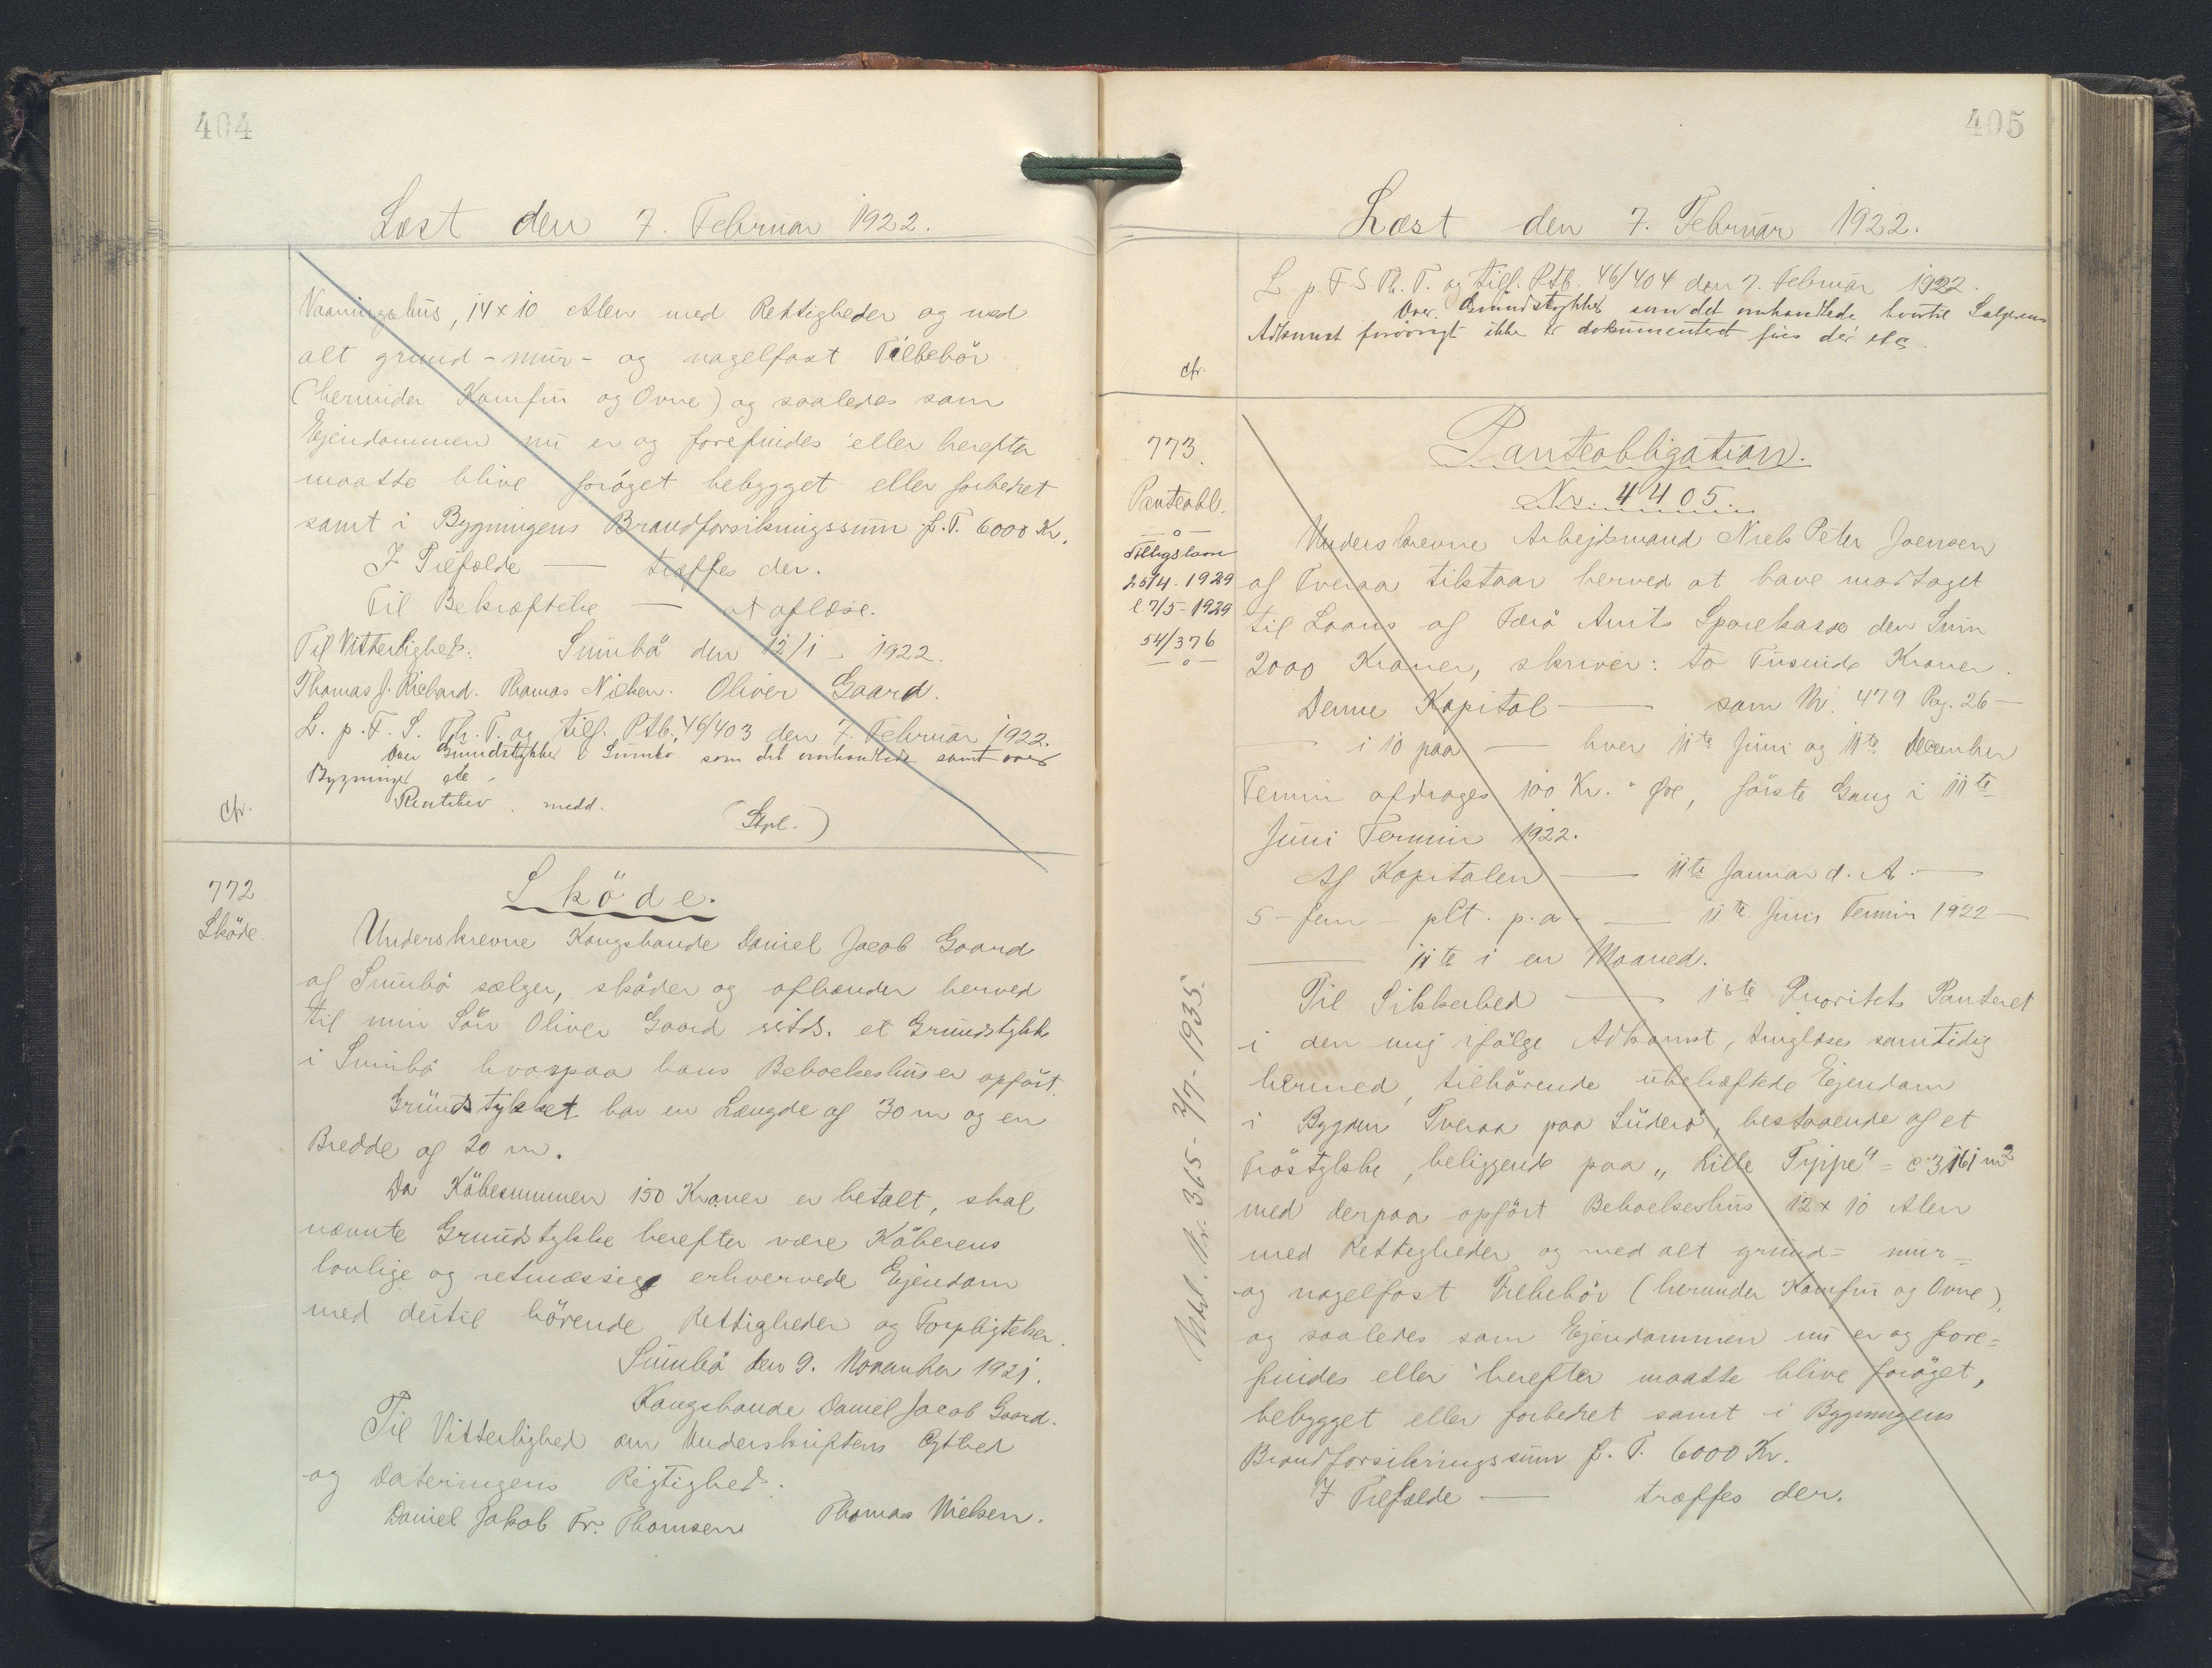 404
Læst den 7. Februar 1922.
Vaaningshus, 14 x 10 Alen med Rettigheder og med
alt grund- mur- og nagelfast Tilbehör
(herunder Komfur og Ovne) og saaledes som
Ejendommen nu er og forefindes eller herefter
maatte blive foröget bebygget eller forbedret
samt i Bygningens Brandforsikringssum f. T. 6000 Kr.
I Tilfælde — træffes der.
Til Bekræftelse — at aflæse.
Til Vitterlighed: Sumbö den 12/1 - 1922.
Thomas J. Richard. Thomas Nielsen. Oliver Gaard.
L. p. F. S. Th. T. og tilf. Ptb. 46/403 den 7. Februar 1922.
over Grundstykke i Sumbö som det omhandlede samt over
Bygninger etc.
cfr. medd. (Stpl.)
772
Sköde.
Sköde.
Underskrevne Kongsbonde Daniel Jacob Gaard
af Sumbö sælger, sköder og afhænder herved
til min Sön Oliver Gaard sstds. et Grundstykke
i Sumbö hvorpaa hans Beboelseshus er opfört.
Grundstykket har en Længde af 30 m og en
Bredde af 20 m.
Da Köbesummen 150 Kroner er betalt, skal
nævnte Grundstykke herefter være Köberens
lovlige og retmæssige erhvervede Ejendom
med dertil hörende Rettigheder og Forpligtelser.
Sumbö den 9. November 1921.
Kongsbonde Daniel Jacob Gaard.
Til Vitterlighed om Underskriftens Ægthed
og Dateringens Rigtighed:
Daniel Jakob Fr. Thomsen Thomas Nielsen.
405
Læst den 7. Februar 1922.
L. p. F S Th. T. og tilf. Ptb. 46/404 den 7. Februar 1922.
Over Grundstykket som det omhandlede hvortil Sælgerens
Adkomst forövrigt ikke er dokumenteret
cfr.
773.
Panteobl.
—o—
25/4. 1929
l 7/5 - 1929
54/376
—o—
Panteobligation.
Nr. 4405.
Underskrevne Arbejdsmand Niels Peter Joensen
af Tveraa tilstaar herved at have modtaget
til Laans af Færö Amts Sparekasse den Sum
2000 Kroner, skriver: to Tusinde Kroner.
Denne Kapital — som Nr. 479 Pag. 26 —
— i 10 paa — hver 11te Juni og 11te December
Termin afdrages 100 Kr. " Øre, förste Gang i 11te
Juni Termin 1922.
Af Kapitalen — 11te Januar d. A. —
5 - fem - pCt. p. a. — 11te Juni Termin 1922 —
— 11te i en Maaned.
Til Sikkerhed — 1ste Prioritets Panteret
i den mig ifölge Adkomst, tinglæses samtidig
hermed, tilhörende ubehæftede Ejendom
i Bygden Tveraa paa Suderö, bestaaende af et
Tröstykke, beliggende paa "Lille Trippe" = c 3161 m2
med derpaa opfört Beboelseshus 12 x 10 Alen
med Rettigheder og med alt grund= mur=
og nagelfast Tilbehör (herunder Komfur og Ovne),
og saaledes som Ejendommen nu er og fore=
findes eller herefter maatte blive foröget,
bebygget eller forbedret samt i Bygningens
Brandforsikringssum f. T. 6000 Kr.
I Tilfælde — træffes der.
Nr. 365 - 2/7 - 1935.